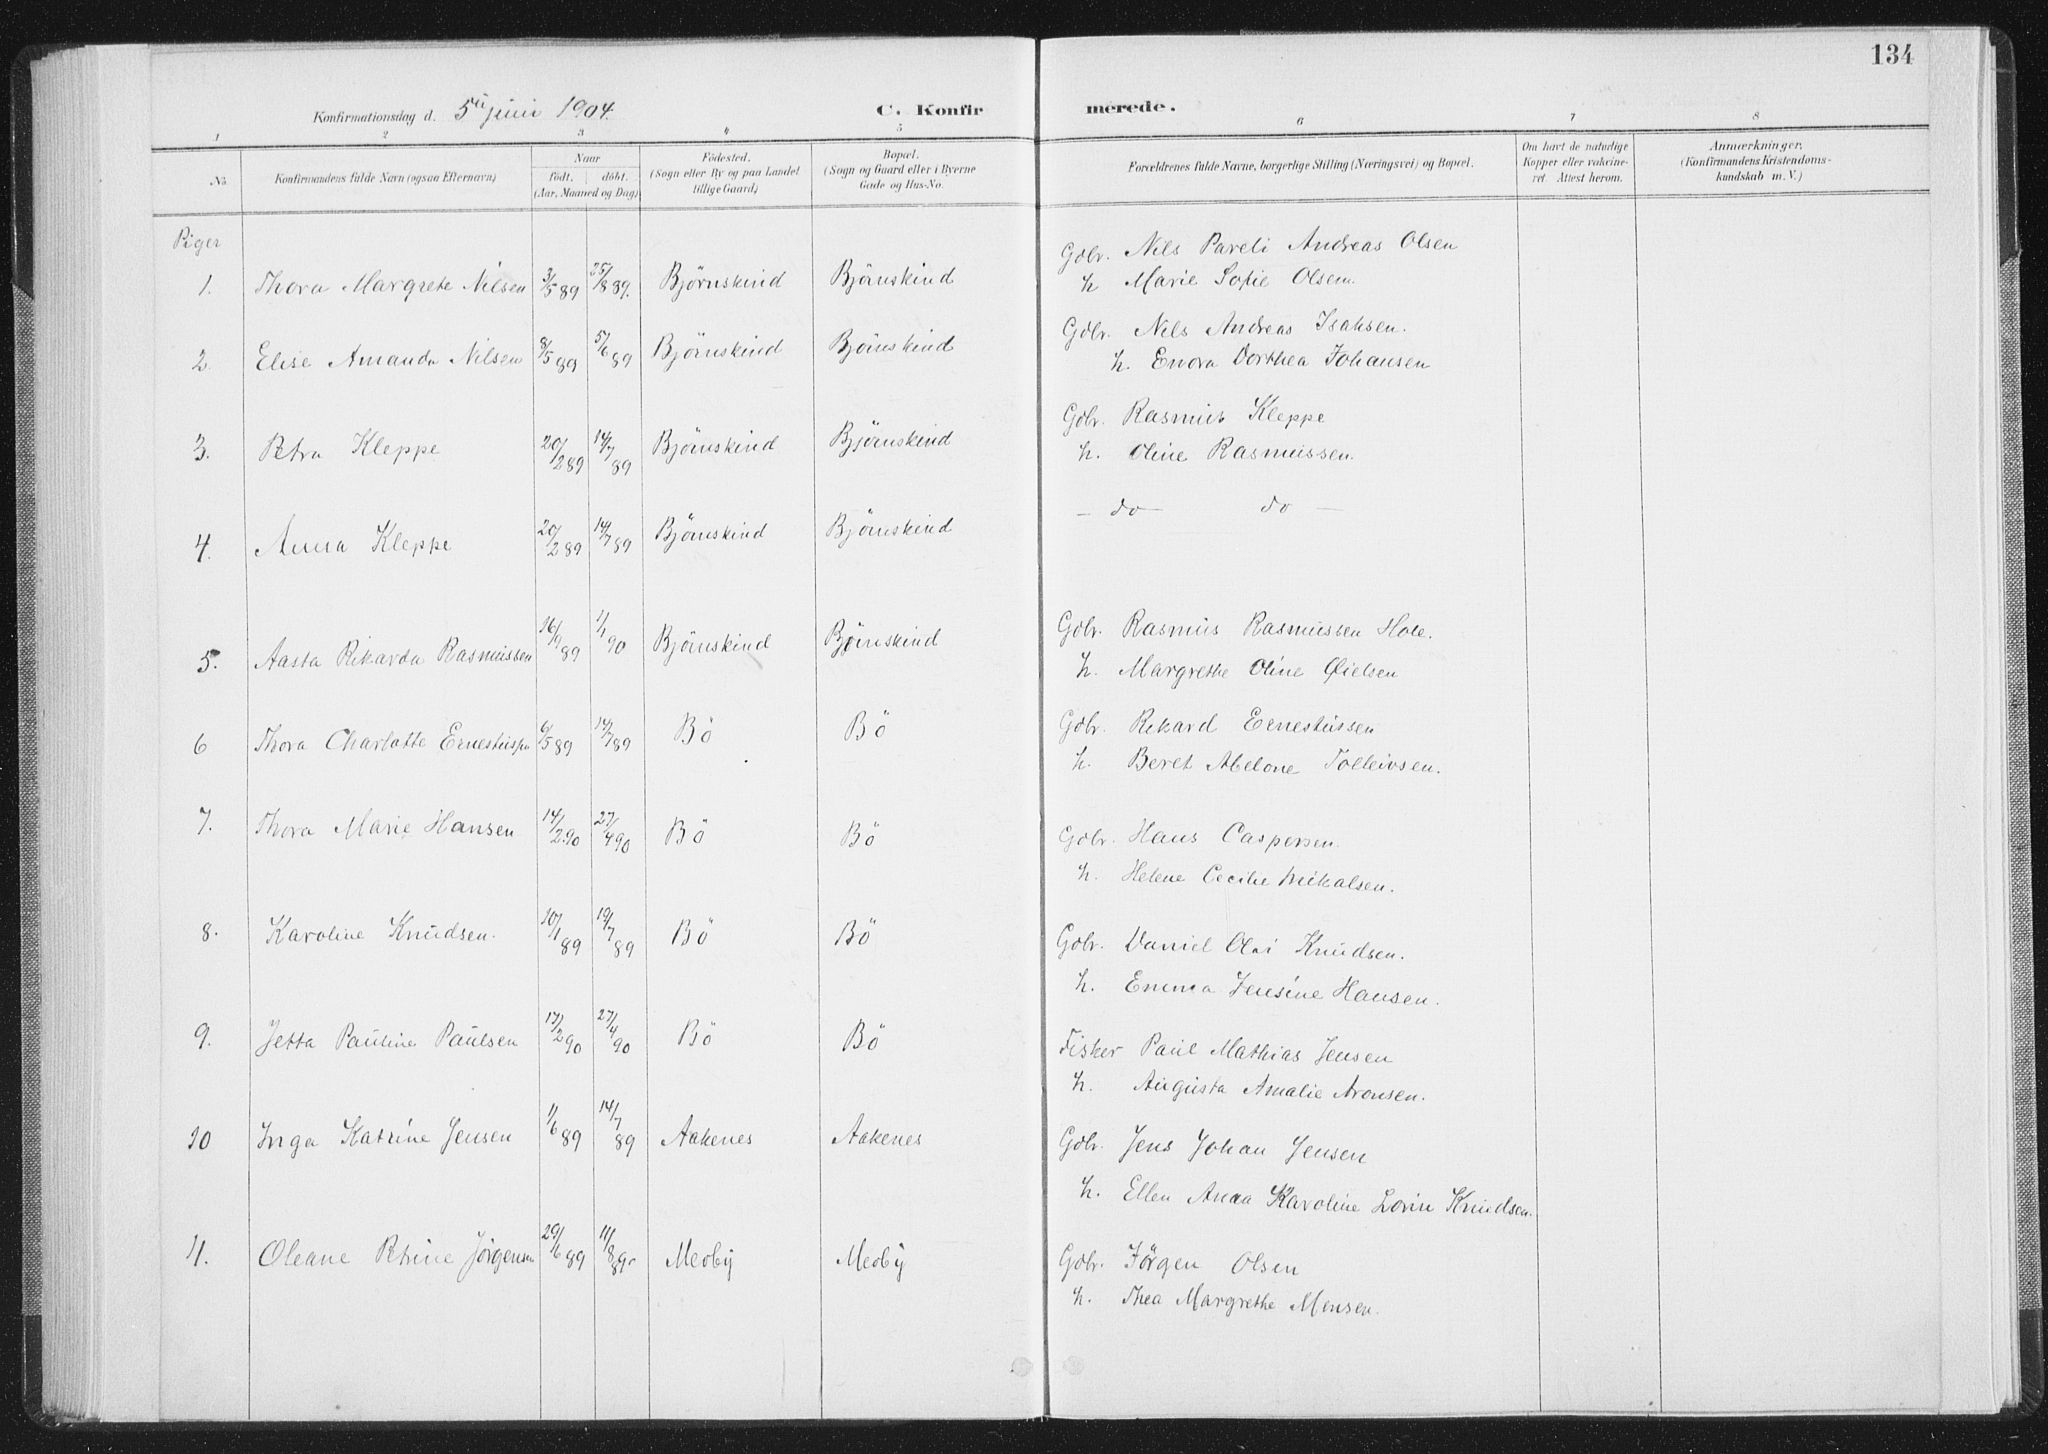 134
Konfirmationsdag d. 5te juni 1904. C. Konfirmerede.
1 2 3 4 5 6 7 8
No. Konfirmandens fulde Navn (ogsaa Efternavn) Naar født. døbt. (Aar, Maaned og Dag) Fødested. (Sogn eller By og paa Landet tillige Gaard) Bopæl. (Sogn og Gaard eller i Byerne Gade og Hus-No. Forældrenes fulde Navne, borgerlige Stilling (Næringsvei) og Bopæl. Om havt de naturlige Kopper eller vakcineret. Attest herom. Anmærkninger. (Konfirmandens Kristendomskundskab m. V.)
Piger
1. Thora Margrete Nilsen 3/5 89 25/8 89. Bjørnskind Bjönskind Gdbr. Nils Pareli Andreas Olsen
h Marie Sofie Olsen.
2. Elise Amanda Nilsen 8/5 89 5/6 89 Bjönskind Bjönskind Gdbr. Nils Andreas Isaksen.
h. Enora Dorthea Johansen
3. Petra Kleppe 20/2 89 14/7 89 Bjönskind Bjönskind Gdbr. Rasmus Kleppe
h. Oline Rasmussen.
4. Anna Kleppe 20/2 89 14/7 89 Bjönskind Bjönskind – do – do –
5. Aasta Rikarda Rasmussen 16/9 89 1/1 90 Bjönskind Bjönskind Gdbr. Rasmus Rasmussen Hole.
h. Margrethe Oline Øielsen
6 Thora Charlotte Ernestusen 6/5 89 14/7 89 Bö Bö Gdbr. Rikard Ernestussen
h. Beret Abelone Tolleivsen.
7. Thora Marie Hansen 14/2 90 27/4 90 Bö Bö Gdbr. Hans Caspersen.
h. Helene Cecilie Mikalsen.
8. Karoline Knudsen. 10/1 89 19/7 89 Bö Bö Gdbr. Daniel Olai Knudsen.
h. Emma Jensine Hansen.
9. Jetta Pauline Paulsen 17/2 90 27/4 90 Bö Bö Fisker Paul Mathias Jensen
h. Augusta Amalie Aronsen.
10 Inga Katrine Jensen 1/6 89 14/7 89 Aakenes Aakenes Gdbr. Jens Johan Jensen
h. Ellen Anna Karoline Lovise Knudsen.
11. Oleane Petrine Jörgensen 29/6 89 11/8 89. Medby Medby Gdbr. Jörgen Olsen
h. Thea Margrethe Monsen.